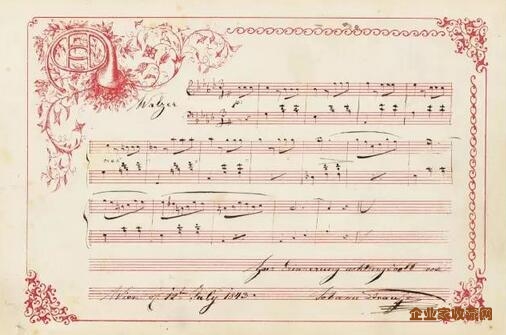 Walzer
Zur Erinnerung achtungsvoll von
Wien 12 July 1843.
Johann Strauss
企业家收藏网